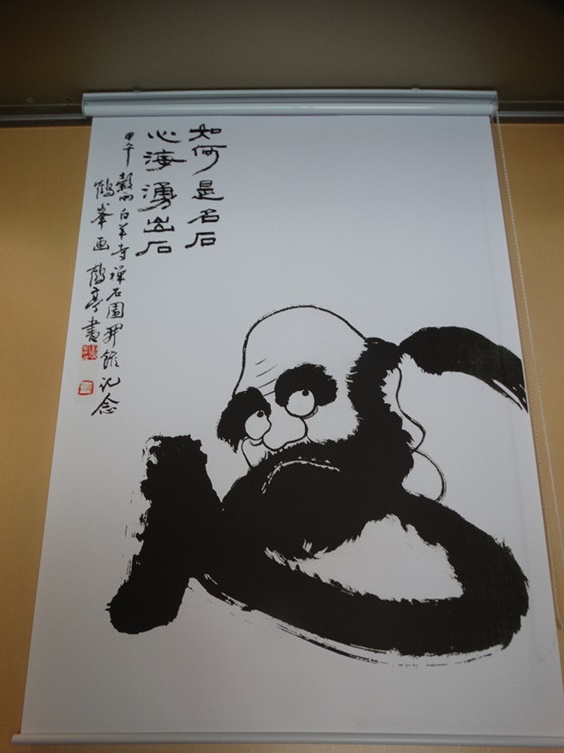 如何是名石
心海湧出石
甲午穀雨白羊寺禅石園開館記念
鶴峯画 亭書